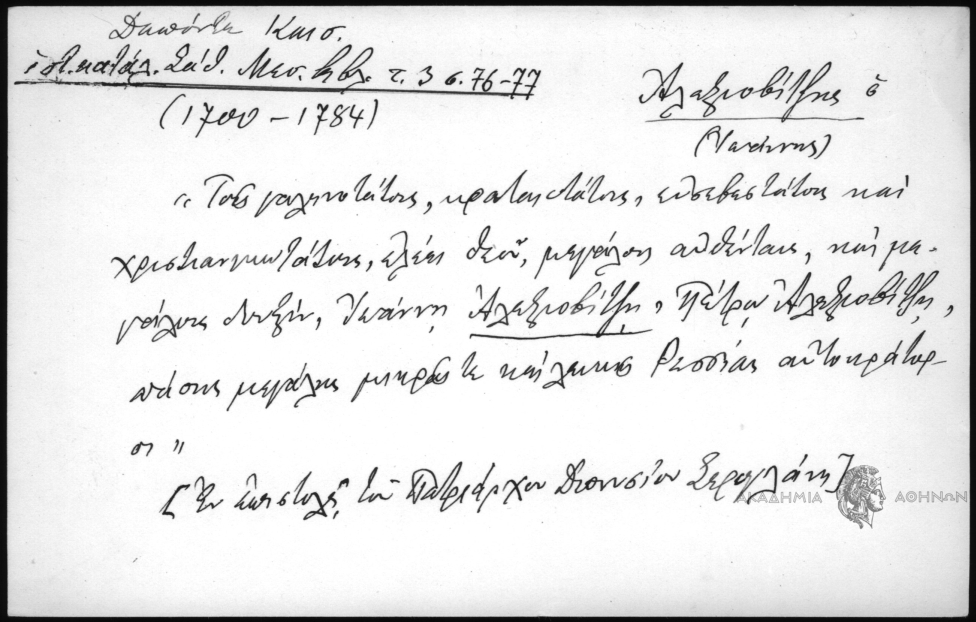 Δαπόντε Κωνσ.
ἱστ. κατάλ. Σάθ. Μεσ. βιβλ. τ. 3 σ. 76-77
(1700 – 1784)
Ἀλεξιοβίτζης ὁ
(Ἰωάννης)
"Τοῖς γαληνοτάτοις, κραταιοτάτοις, εὐσεβεστάτοις καὶ
χριστιανικωτάτοις, ἐλέει Θεοῦ, μεγάλοις αὐθένταις, καὶ με-
γάλοις δουξὶν, Ἰωάννῃ Ἀλεξιοβίτζῃ, Πέτρῳ Ἀλεξιοβίτζῃ,
πάσης μεγάλης μικρᾶς τε καὶ λευκῆς Ῥωσσίας αὐτοκράτορ-
σι"
[Ἐν ἐπιστολῇ τοῦ Πατριάρχου Διονυσίου Σερογλάνη]
ΑΚΑΔΗΜΙΑ ΑΘΗΝΩΝ